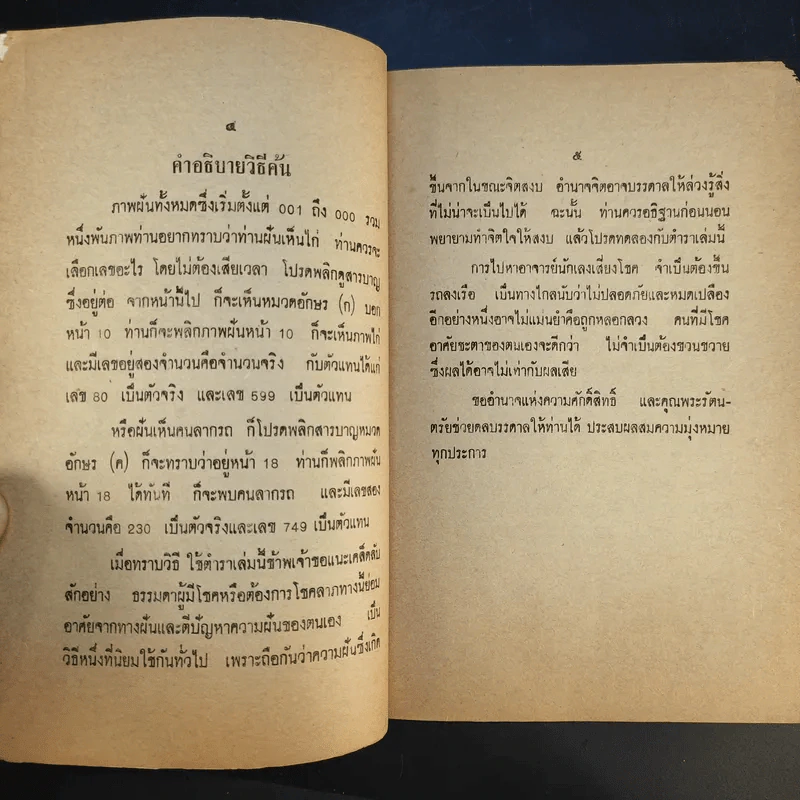 ๔
คำอธิบายวิธีค้น
ภาพฝันทั้งหมดซึ่งเริ่มตั้งแต่ 001 ถึง 000 รวม
หนึ่งพันภาพท่านอยากทราบว่าท่านฝันเห็นไก่ ท่านควรจะ
เลือกเลขอะไร โดยไม่ต้องเสียเวลา โปรดพลิกดูสารบาญ
ซึ่งอยู่ต่อ จากหน้านี้ไป ก็จะเห็นหมวดอักษร (ก) บอก
หน้า 10 ท่านก็จะพลิกภาพฝันหน้า 10 ก็จะเห็นภาพไก่
และมีเลขอยู่สองจำนวนคือจำนวนจริง กับตัวแทนได้แก่
เลข 80 เป็นตัวจริง และเลข 599 เป็นตัวแทน
หรือฝันเห็นคนลากรถ ก็โปรดพลิกสารบาญหมวด
อักษร (ค) ก็จะทราบว่าอยู่หน้า 18 ท่านก็พลิกภาพฝัน
หน้า 18 ได้ทันที ก็จะพบคนลากรถ และมีเลขสอง
จำนวนคือ 230 เป็นตัวจริงและเลข 749 เป็นตัวแทน
เมื่อทราบวิธี ใช้ตำราเล่มนี้ข้าพเจ้าขอแนะเคล็ดลับ
สักอย่าง ธรรมดาผู้มีโชคหรือต้องการโชคลาภทางนี้ย่อม
อาศัยจากทางฝันและตีปัญหาความฝันของตนเอง เป็น
วิธีหนึ่งที่นิยมใช้กันทั่วไป เพราะถือกันว่าความฝันซึ่งเกิด
๕
ขึ้นจากในขณะจิตสงบ อำนาจจิตอาจบรรดาลให้ล่วงรู้สิ่ง
ที่ไม่น่าจะเป็นไปได้ ฉะนั้น ท่านควรอธิฐานก่อนนอน
พยายามทำจิตใจให้สงบ แล้วโปรดทดลองกับตำราเล่มนี้
การไปหาอาจารย์นักเลงเสี่ยงโชค จำเป็นต้องขึ้น
รถลงเรือ เป็นทางไกลนับว่าไม่ปลอดภัยและหมดเปลือง
อีกอย่างหนึ่งอาจไม่แม่นยำคือถูกหลอกลวง คนที่มีโชค
อาศัยชะตาของตนเองจะดีกว่า ไม่จำเป็นต้องขวนขวาย
ซึ่งผลได้อาจไม่เท่ากับผลเสีย
ขออำนาจแห่งความศักดิ์สิทธิ์ และคุณพระรัตน-
ตรัยช่วยดลบรรดาลให้ท่านได้ ประสบผลสมความมุ่งหมาย
ทุกประการ